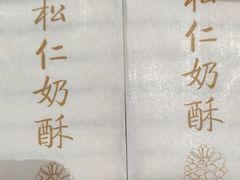 松仁奶酥
松仁奶酥